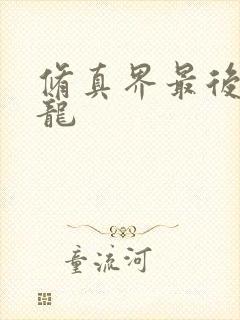 脩真界最後
龍
童流河